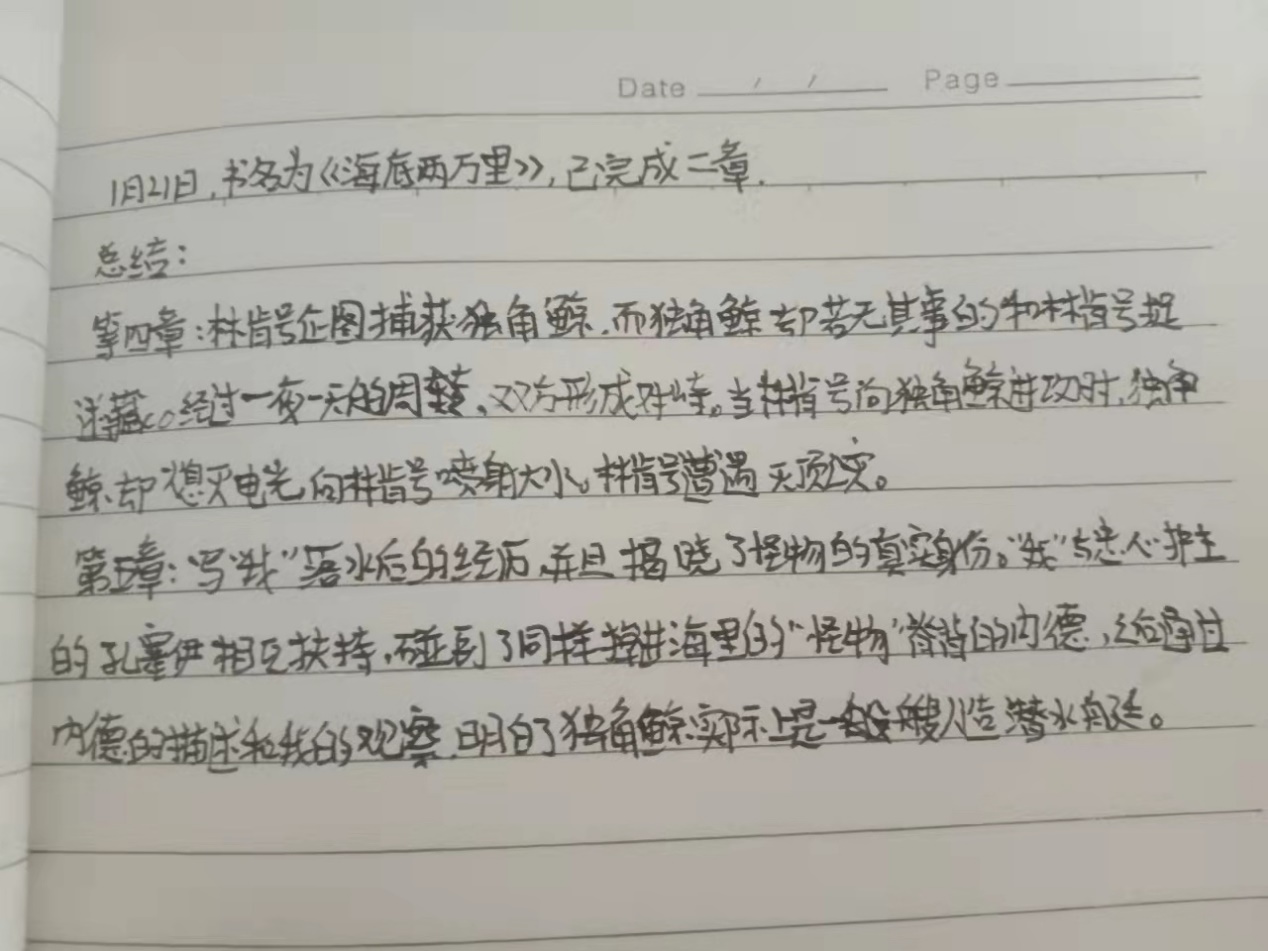 Date / / Page
1月21日,书名为《海底两万里》,已完成二章.
总结:
第四章:林肯号企图捕获独角鲸.而独角鲸却若无其事的和林肯号捉
迷藏。经过一夜一天的周转、双方形成对峙。当林肯号向独角鲸进攻时,独角
鲸却熄灭电光向林肯号喷射大水。林肯号遭遇灭顶之灾。
第五章:写“我”落水后的经历,并且揭晓了怪物的真实身份。“我”与忠心护主
的孔塞伊相互扶持,碰到了同样掉进海里的“怪物”脊背的内德,之后通过
内德的描述和我的观察,明白了独角鲸实际上是一艘人造潜水舰艇。